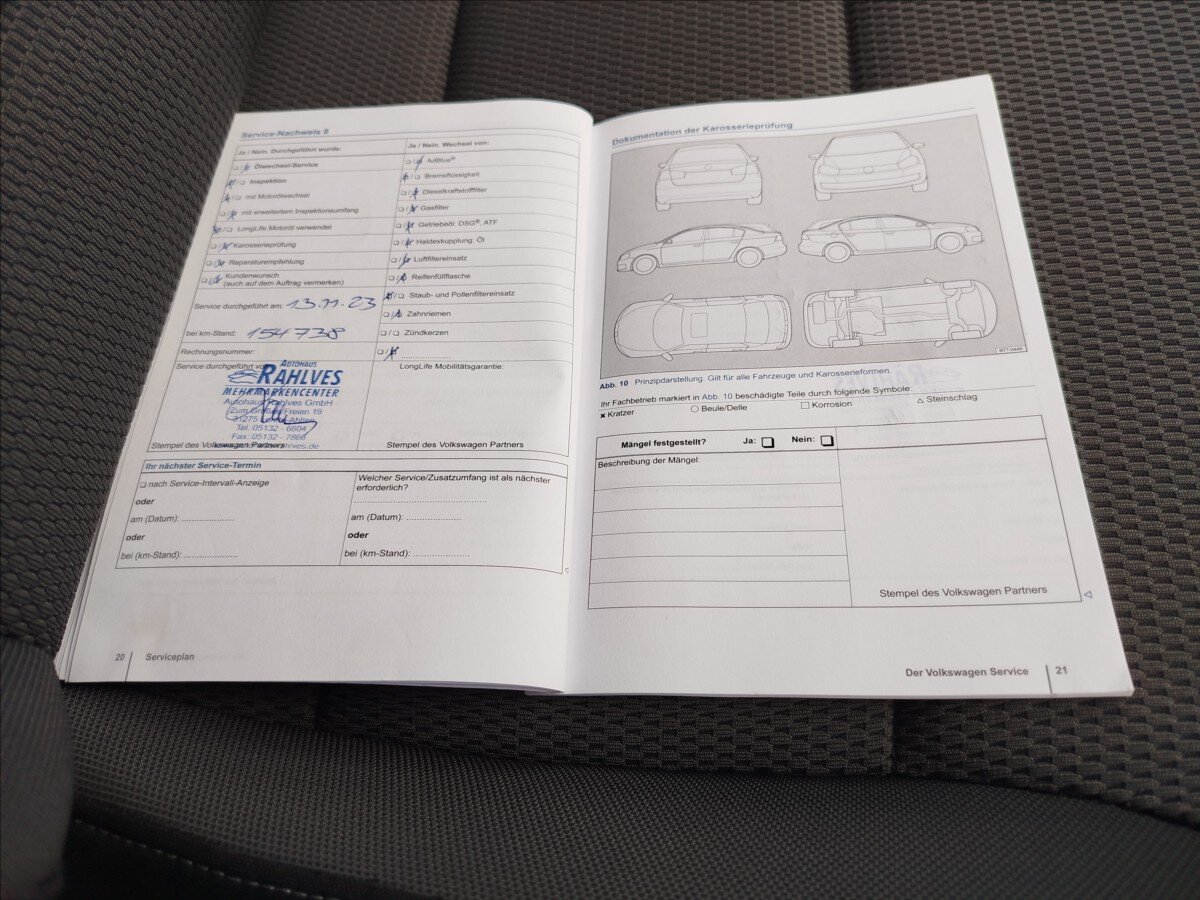 Service-Nachweis 8
Ja / Nein. Durchgeführt wurde:
❏/❏ Ölwechsel-Service
❏/❏ Inspektion
❏/❏ mit Motorölwechsel
❏/❏ mit erweitertem Inspektionsumfang
❏/❏ LongLife Motoröl verwendet
❏/❏ Karosserieprüfung
❏/❏ Reparaturempfehlung
❏/❏ Kundenwunsch
(auch auf dem Auftrag vermerken)
Service durchgeführt am: 13.11.23
bei km-Stand: 154738
Rechnungsnummer:
Service durchgeführt von
AUTOHAUS
RAHLVES
MEHRMARKENCENTER
Autohaus Rahlves GmbH
Zum Großen Freien 19
31275
Tel. 05132 - 6604
Fax: 05132 - 7866
Stempel des Volkswagen Partners
Ja / Nein. Wechsel von:
❏/❏ AdBlue®
❏/❏ Bremsflüssigkeit
❏/❏ Dieselkraftstofffilter
❏/❏ Gasfilter
❏/❏ Getriebeöl: DSG®, ATF
❏/❏ Haldexkupplung: Öl
❏/❏ Luftfiltereinsatz
❏/❏ Reifenfüllflasche
❏/❏ Staub- und Pollenfiltereinsatz
❏/❏ Zahnriemen
❏/❏ Zündkerzen
❏/❏ .....................
LongLife Mobilitätsgarantie:
Stempel des Volkswagen Partners
Ihr nächster Service-Termin
❏ nach Service-Intervall-Anzeige
oder
am (Datum): .....................
oder
bei (km-Stand): .....................
Welcher Service/Zusatzumfang ist als nächster
erforderlich?
..................................................
am (Datum): .....................
oder
bei (km-Stand): .....................
20 Serviceplan
Dokumentation der Karosserieprüfung
BTT-0449
Abb. 10 Prinzipdarstellung. Gilt für alle Fahrzeuge und Karosserieformen.
Ihr Fachbetrieb markiert in Abb. 10 beschädigte Teile durch folgende Symbole:
✖ Kratzer ○ Beule/Delle □ Korrosion △ Steinschlag
Mängel festgestellt? Ja: ❏ Nein: ❏
Beschreibung der Mängel:
Stempel des Volkswagen Partners
Der Volkswagen Service 21